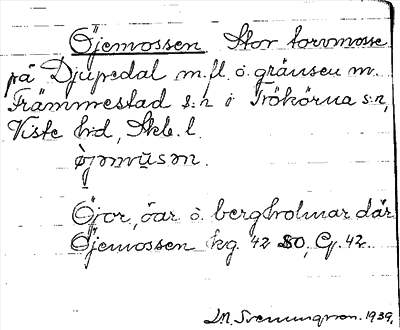 Öjemossen Stor torvmosse
på Djupedal m. fl. o. gränsen m.
Främmestad s:n i Trökörna s:n,
Viste h:d, Skb. l.
Öjor, öar o. bergholmar där
Öjemossen kg. 42 SO, Cg. 42.
1939.